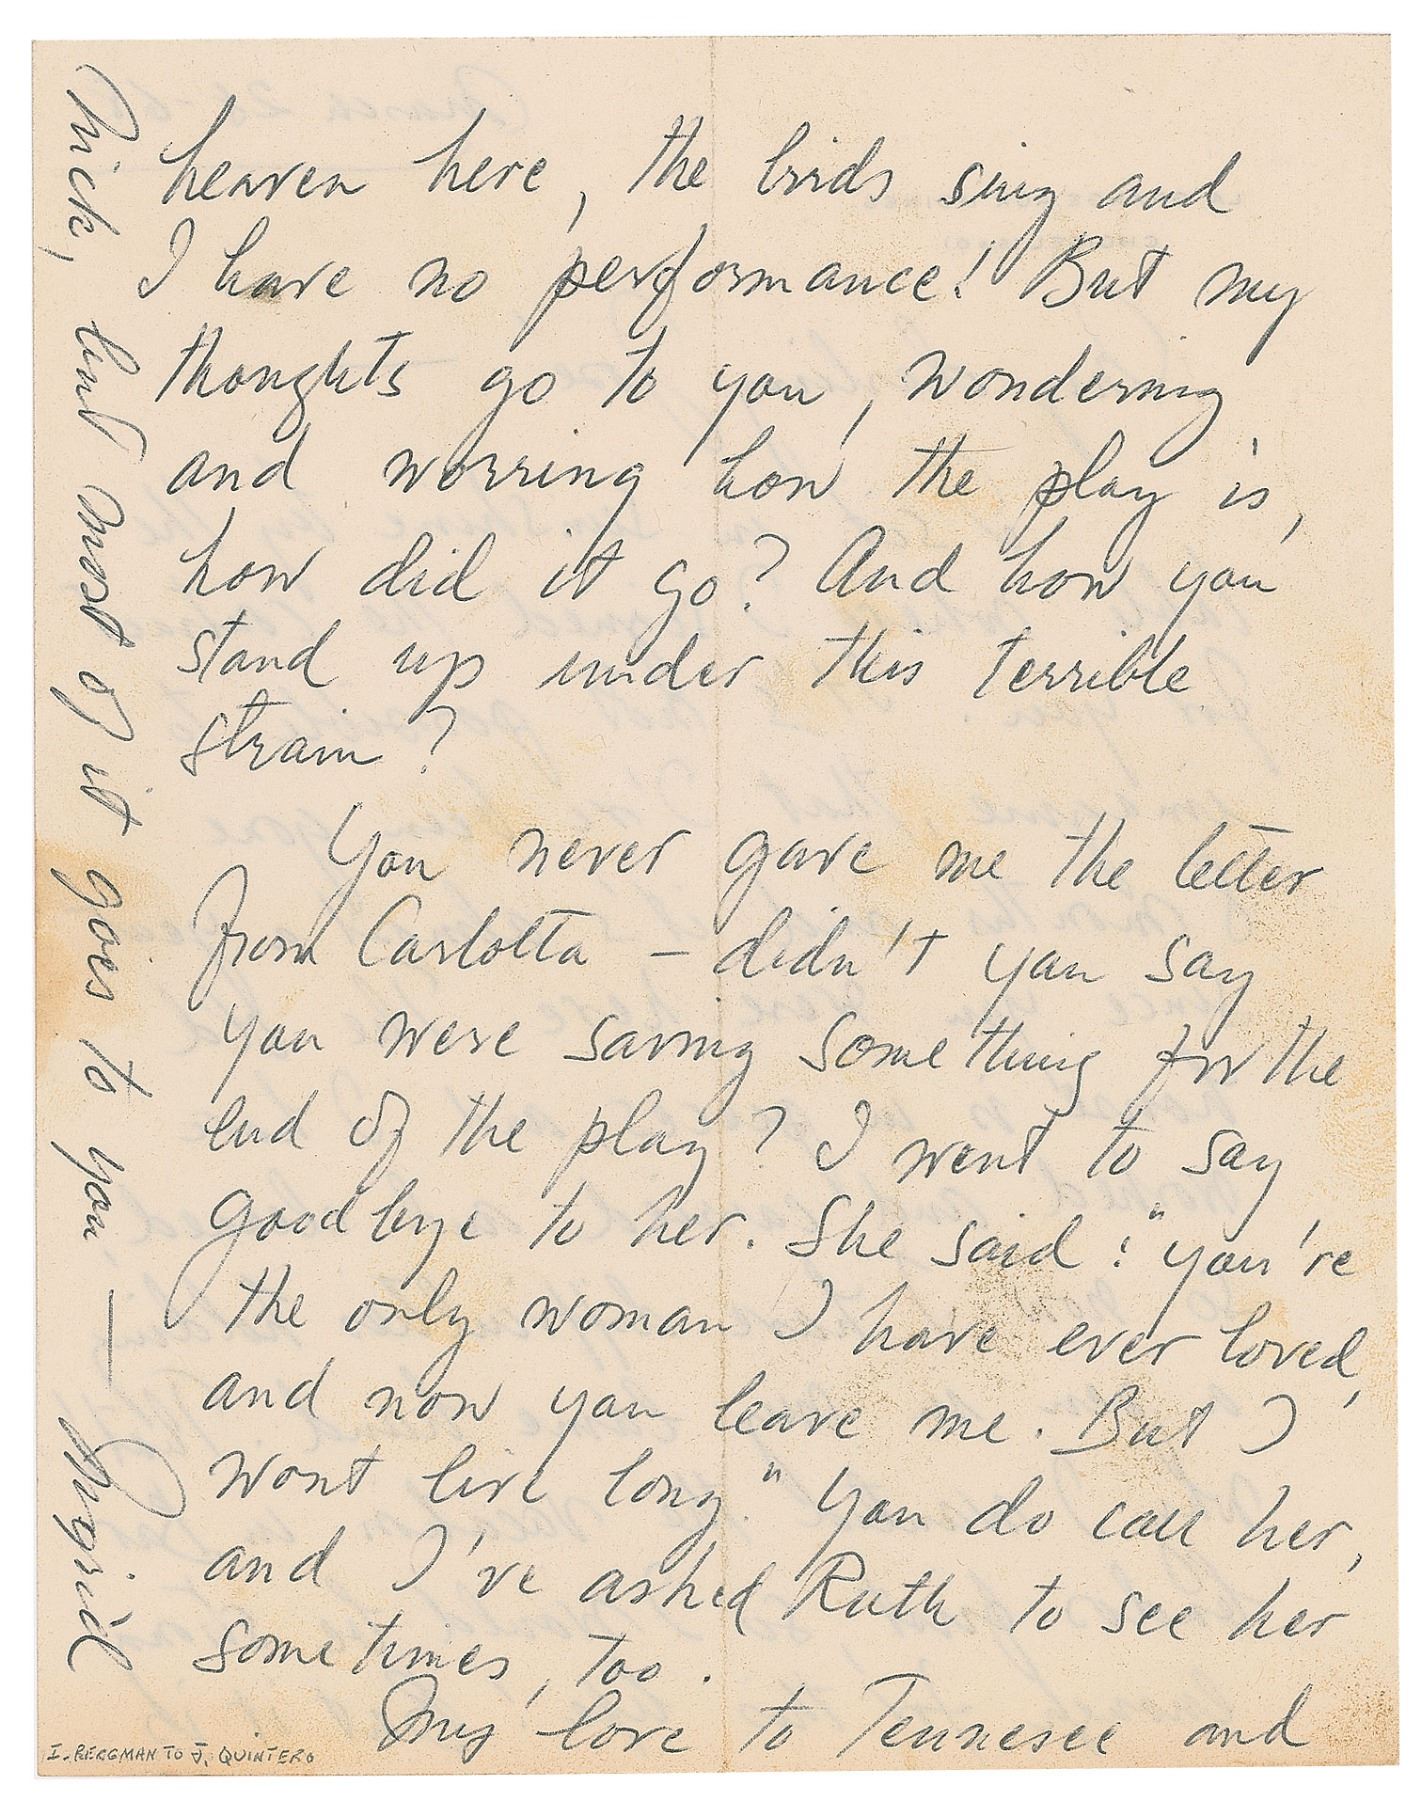 heaven here, the birds sing and
I have no performance! But my
thoughts go to you, wondering
and worring how the play is,
how did it go? And how you
stand up under this terrible
strain?
You never gave me the letter
from Carlotta – didn't you say
you were saving something for the
end of the play? I went to say
goodbye to her. She said: "you're
the only woman I have ever loved,
and now you leave me. But I
wont live long." You do call her,
and I've asked Ruth to see her
sometimes, too.
My love to Tennesee and
Nick, but most of it goes to you — Ingrid
I. BERGMAN TO J. QUINTERO